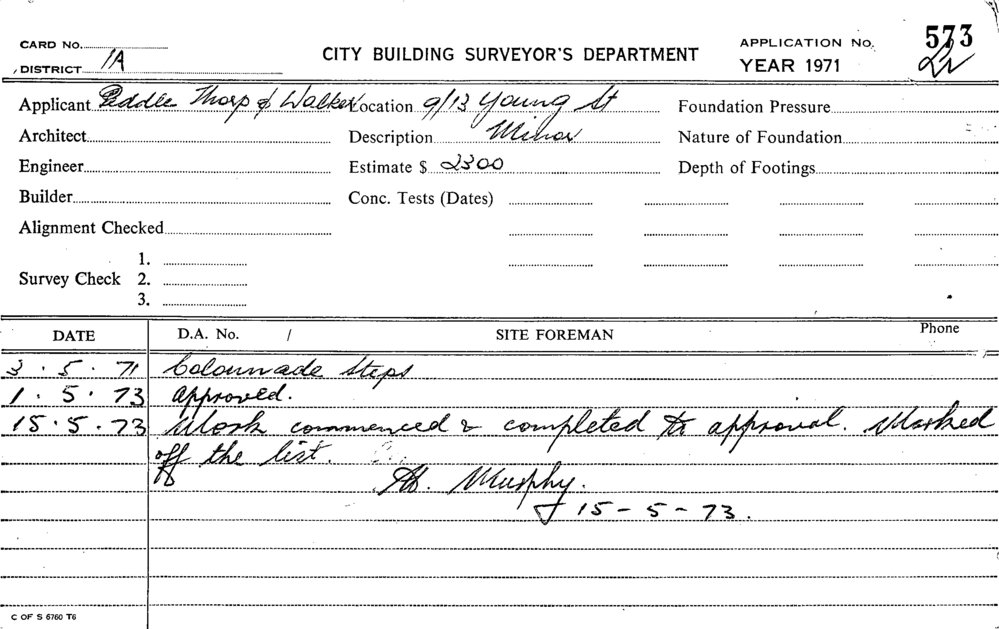 CARD NO.
CITY BUILDING SURVEYOR'S DEPARTMENT
APPLICATION NO. 573
DISTRICT 1A
YEAR 1971
Applicant Peddle Thorp & Walker Location 9/13 Young St Foundation Pressure
Architect Description Minor Nature of Foundation
Engineer Estimate $ 2300 Depth of Footings
Builder Conc. Tests (Dates)
Alignment Checked
1.
Survey Check 2.
3.
DATE D.A. No. / SITE FOREMAN Phone
3 . 5 . 71 Colonnade Steps
1 . 5 . 73 approved.
15 . 5 . 73 Work commenced & completed to approval. Marked
off the list.
Murphy.
15 - 5 - 73.
C OF S 6760 T6